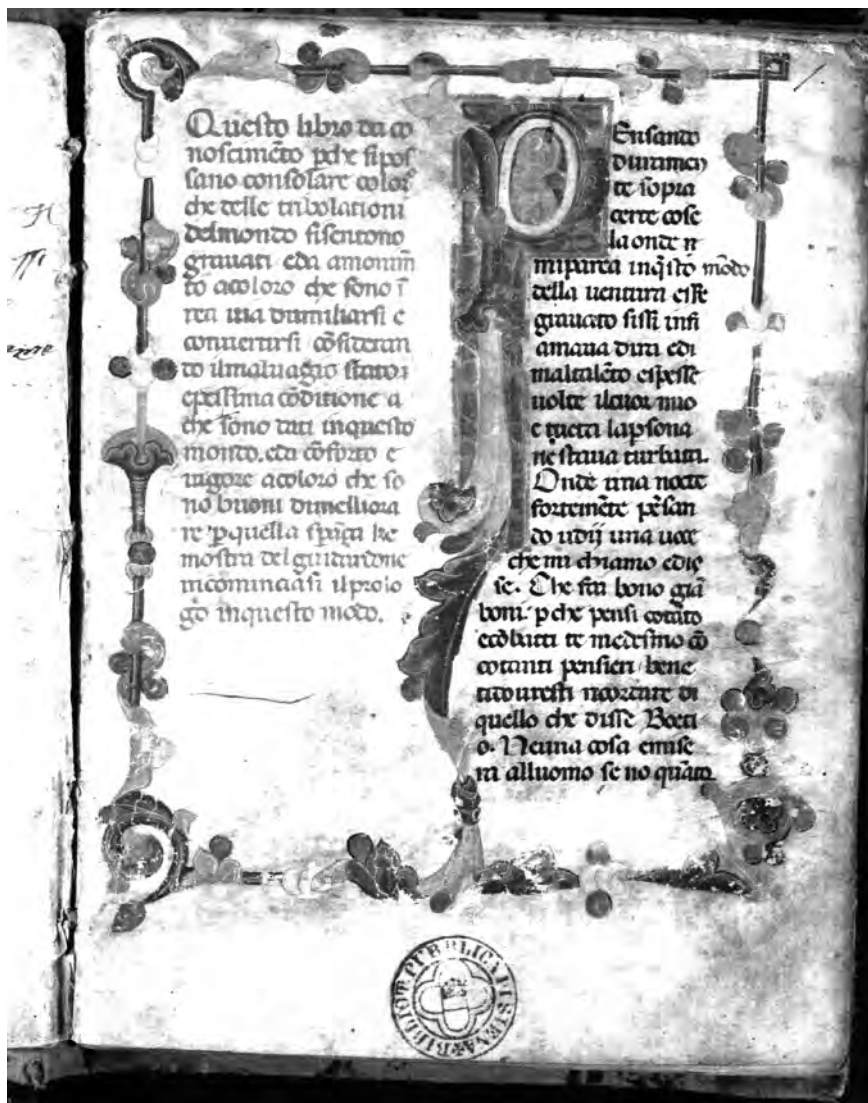 Questo libro da co
noscimēto pche sipos
sano consolare color
che delle tribolationi
delmondo sisentono
grauati eda amonim̄
to acoloro che sono ī
rea uia dumiliarsi e
conuertirsi cōsideran
do ilmaluagio stato
epessima cōditione a
che sono dati inquesto
mondo. eda cōforto e
uigore acoloro che so
no buoni dimelliora
re pquella che
mostra del guidardone
incominciasi ilprolo
go inquesto modo.
PEnsando
duramen
te sopra
certe cose
la onde
miparea inq̄sto modo
della uentura esse
grauato si
amaua dira edi
maltalēto espesse
uolte ilcuor mio
e tucta lapsona
ne staua turbata.
Onde una nocte
fortemēte pēsan
do udij una uoce
che mi chiamo edis
se. Che fai bono giā
boni. pche pensi cotāto
ecōbatti te medesmo cō
cotanti pensieri bene
tidouresti ricordare di
quello che disse Boeti
o. Neuna cosa emise
ra alluomo se no quāto
BIBLIOT. PUBBLICA DI SIENA